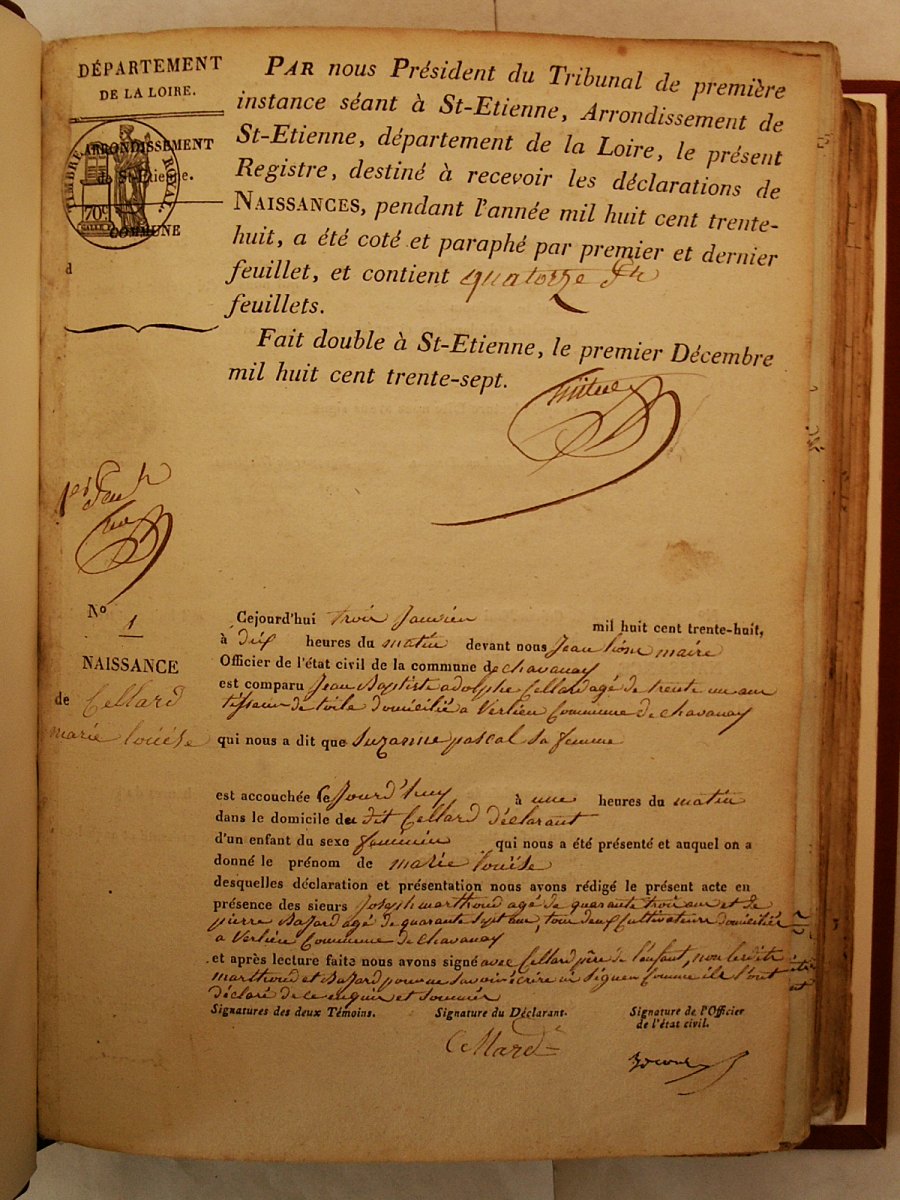 DÉPARTEMENT
DE LA LOIRE.
TIMBRE ROYAL.
70c
ARRONDISSEMENT
de St-Etienne.
COMMUNE
d
PAR nous Président du Tribunal de première
instance séant à St-Etienne, Arrondissement de
St-Etienne, département de la Loire, le présent
Registre, destiné à recevoir les déclarations de
NAISSANCES, pendant l'année mil huit cent trente-
huit, a été coté et paraphé par premier et dernier
feuillet, et contient quatorze
feuillets.
Fait double à St-Etienne, le premier Décembre
mil huit cent trente-sept.
1er
No 1
NAISSANCE
de Cellard
marie louise
Cejourd'hui trois Janvier mil huit cent trente-huit,
à dix heures du matin devant nous Jean maire
Officier de l'état civil de la commune de chavanay
est comparu Jean Baptiste adolphe Cellard agé de trente un ans
tisseur de toile domicilié a Verlieu Commune de chavanay
qui nous a dit que Suzanne pascal sa femme
est accouchée ce Jourd'huy à une heures du matin
dans le domicile du dit Cellard déclarant
d'un enfant du sexe féminin qui nous a été présenté et auquel on a
donné le prénom de marie louise
desquelles déclaration et présentation nous avons rédigé le présent acte en
présence des sieurs Joseph marthoud agé de quarante trois ans et de
pierre Bajard agé de quarante sept ans, tous deux Cultivateurs domiciliés
a Verlieu Commune de Chavanay
et après lecture faite nous avons signé avec Cellard père de l'enfant, non lesdits
marthoud et Bajard pour ne savoir écrire ni signer Comme ils l'ont
déclaré de ce enquis et sommés
Signatures des deux Témoins. Signature du Déclarant. Signature de l'Officier
de l'état civil.
Cellard